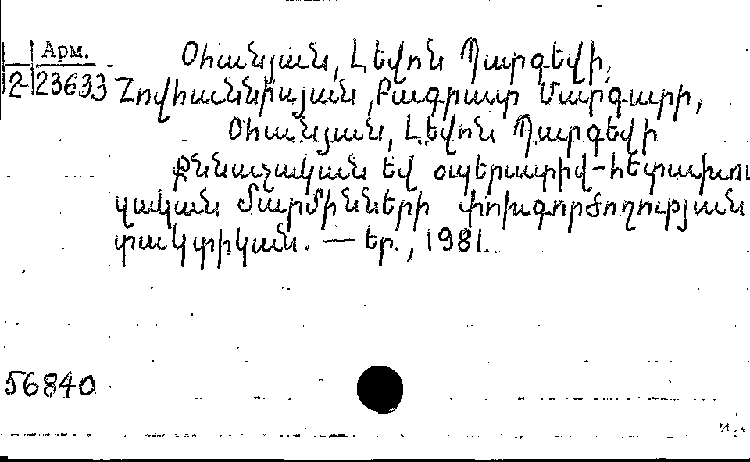 Арм.
2-23633
Օհանյան, Լևոն Պարգեվի,
Հովհաննիսյան, Բագրատ Մարգարի,
Օհանյան, Լևոն Պարգեվի
Քննչական եվ օպերատիվ-հետախու
զական մարմինների փոխգործողության
տակտիկան. — Եր., 1981.
56840